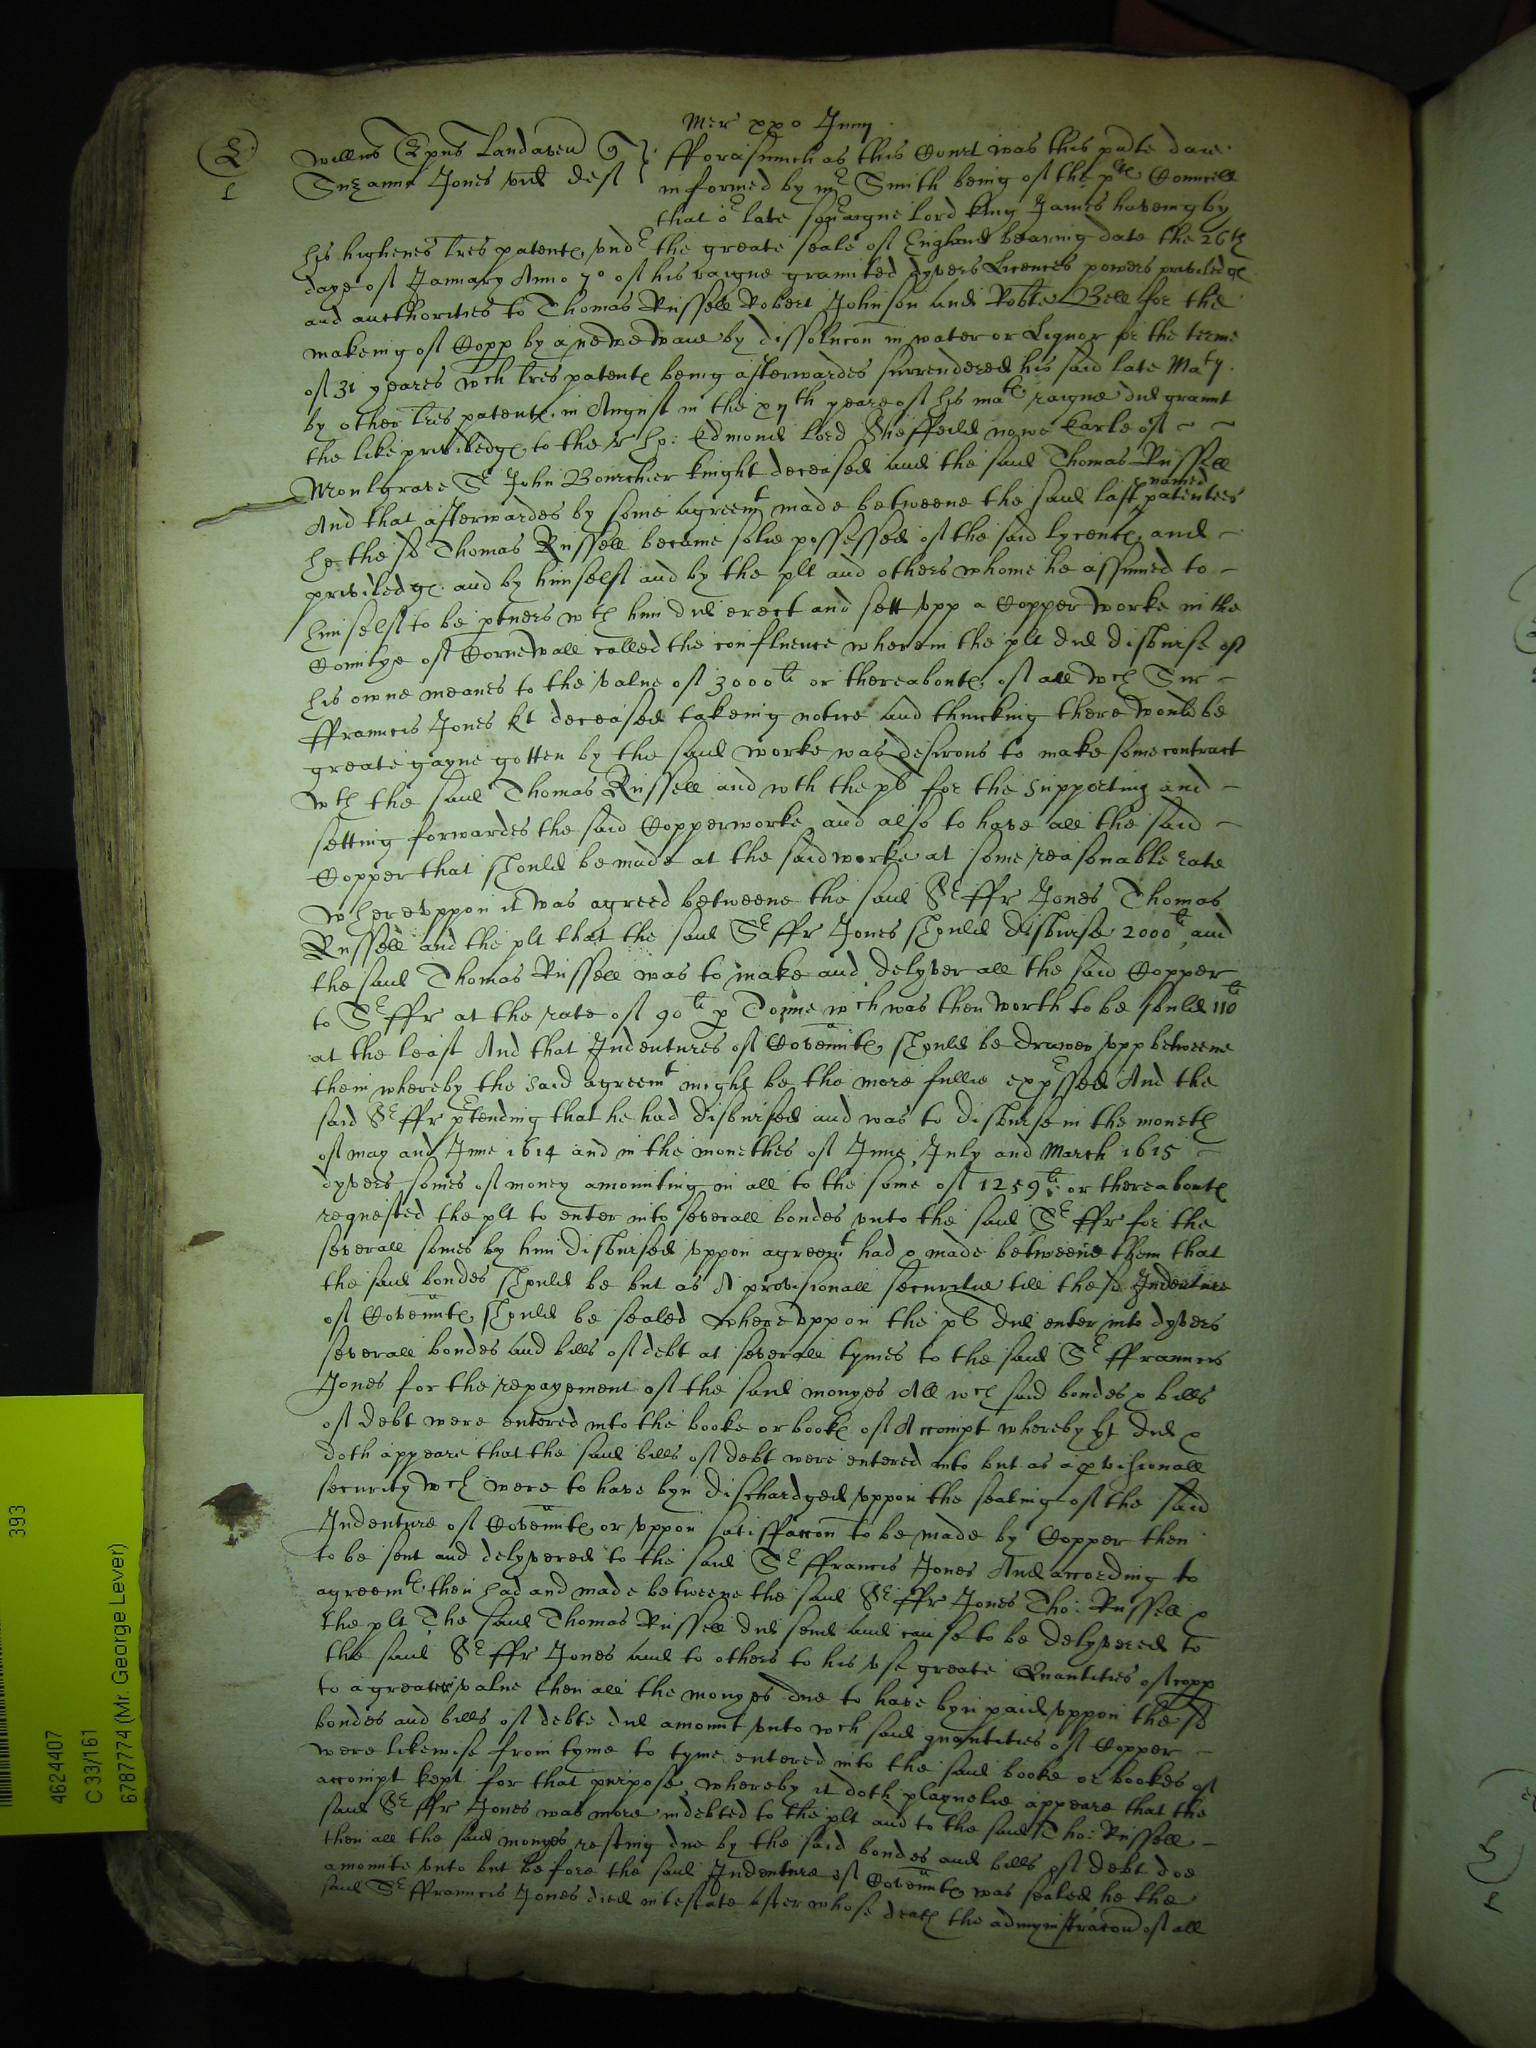 Mer xxo Junij
Willms Epus Landaven q
Suzanna Jones vid deft
L
fforasmuch as this Court was this pnte daie
informed by mr Smith being of the pltes Councell
that or late soveraigne lord king James haveing by
his highenes lres patentes undr the greate seale of England bearing date the 26th
daye of January Anno 7o of his raigne graunted dyvers Licences powers priviledges
and aucthorities to Thomas Russell Robert Johnson and Robte Bell for the
makeing of Copp by a newe waie by dissolucon in water or Liquor for the terme
of 31 yeares wch lres patentes being afterwardes surrendered his said late Maty
by other lres patentes in August in the xijth yeare of his mats raigne did graunt
the like priviledges to the r ho: Edmond lord Sheffeild nowe Earle of
Moulgrave Sr John Bourchier knight deceased and the said Thomas Russell
And that afterwardes by some agreemt made betweene the said last named patentees
he the sd Thomas Russell became solie possessed of the said lycences and
priviledges and by himself and by the plt and others whome he assumed to
himself to be ptners wth him did erect and sett upp a Copper worke in the
Countye of Cornewall called the confluence wherein the plt did disburse of
his owne meanes to the value of 3000li or thereaboutes of all wch Sir
ffrauncis Jones kt deceased takeing notice and thincking there would be
greate gayne gotten by the said worke was desirous to make some contract
wth the said Thomas Russell and wth the pl for the supporting and
setting forwardes the said Copperworke and also to have all the said
Copper that should be made at the said worke at some reasonable rate
Whereuppon it was agreed betweene the said Sr ffr Jones Thomas
Russell and the plt that the said Sr ffr Jones should disburse 2000li and
the said Thomas Russell was to make and delyver all the said Copper
to Sr ffr at the rate of 90li p Tonne wch was then worth to be sould 110li
at the least And that Indentures of Covenntes should be drawen upp betweene
them whereby the said agreemt might be the more fullie expressed And the
said Sr ffr ptending that he had disbursed and was to disburse in the moneth
of may and June 1614 and in the monethes of June July and March 1615
dyvers somes of money amounting in all to the some of 1259li or thereaboutes
requested the plt to enter into severall bondes unto the said Sr ffr for the
severall somes by him disbursed uppon agreemt had & made betweene them that
the said bondes should be but as A provisionall securitie till the sd Indenture
of Covenntes should be sealed whereuppon the pl did enter into dyvers
severall bondes and bills of debt at severall tymes to the said Sr ffrauncis
Jones for the repayement of the said monyes All wch said bondes & bills
of debt were entered into the booke or bookes of Accompt whereby yt did &
doth appeare that the said bills of debt were entered into but as a pvisionall
security wch were to have byn dischardged uppon the sealing of the said
Indenture of Covenntes or uppon satisfaccon to be made by Copper then
to be sent and delyvered to the said Sr ffrancis Jones And according to
agreemts then had and made betweene the said Sr ffr Jones Tho: Russell &
the plt The said Thomas Russell did send and cause to be delyvered to
the said Sr ffr Jones and to others to his use greate Quantities of copp
to a greater value then all the monyes due to have byn paid uppon the sd
bondes and bills of debte did amount unto wch said quantities of Copper
were likewise from tyme to tyme entered into the said booke or bookes of
accompt kept for that purpose whereby it doth playnelie appeare that the
said Sr ffr Jones was more indebted to the plt and to the said Tho: Russell
then all the said monyes resting due by the said bondes and bills of debt doe
amounte unto but before the said Indenture of Covenntes was sealed he the
said Sr ffrauncis Jones died intestate after whose death the admynistracon of all
393
4624407
C 33/161
6787774 (Mr. George Lever)